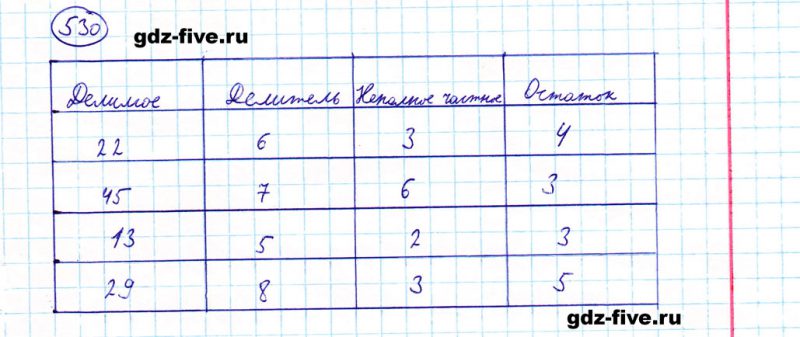 530
gdz-five.ru
Делимое Делитель Неполное частное Остаток
22 6 3 4
45 7 6 3
13 5 2 3
29 8 3 5
gdz-five.ru